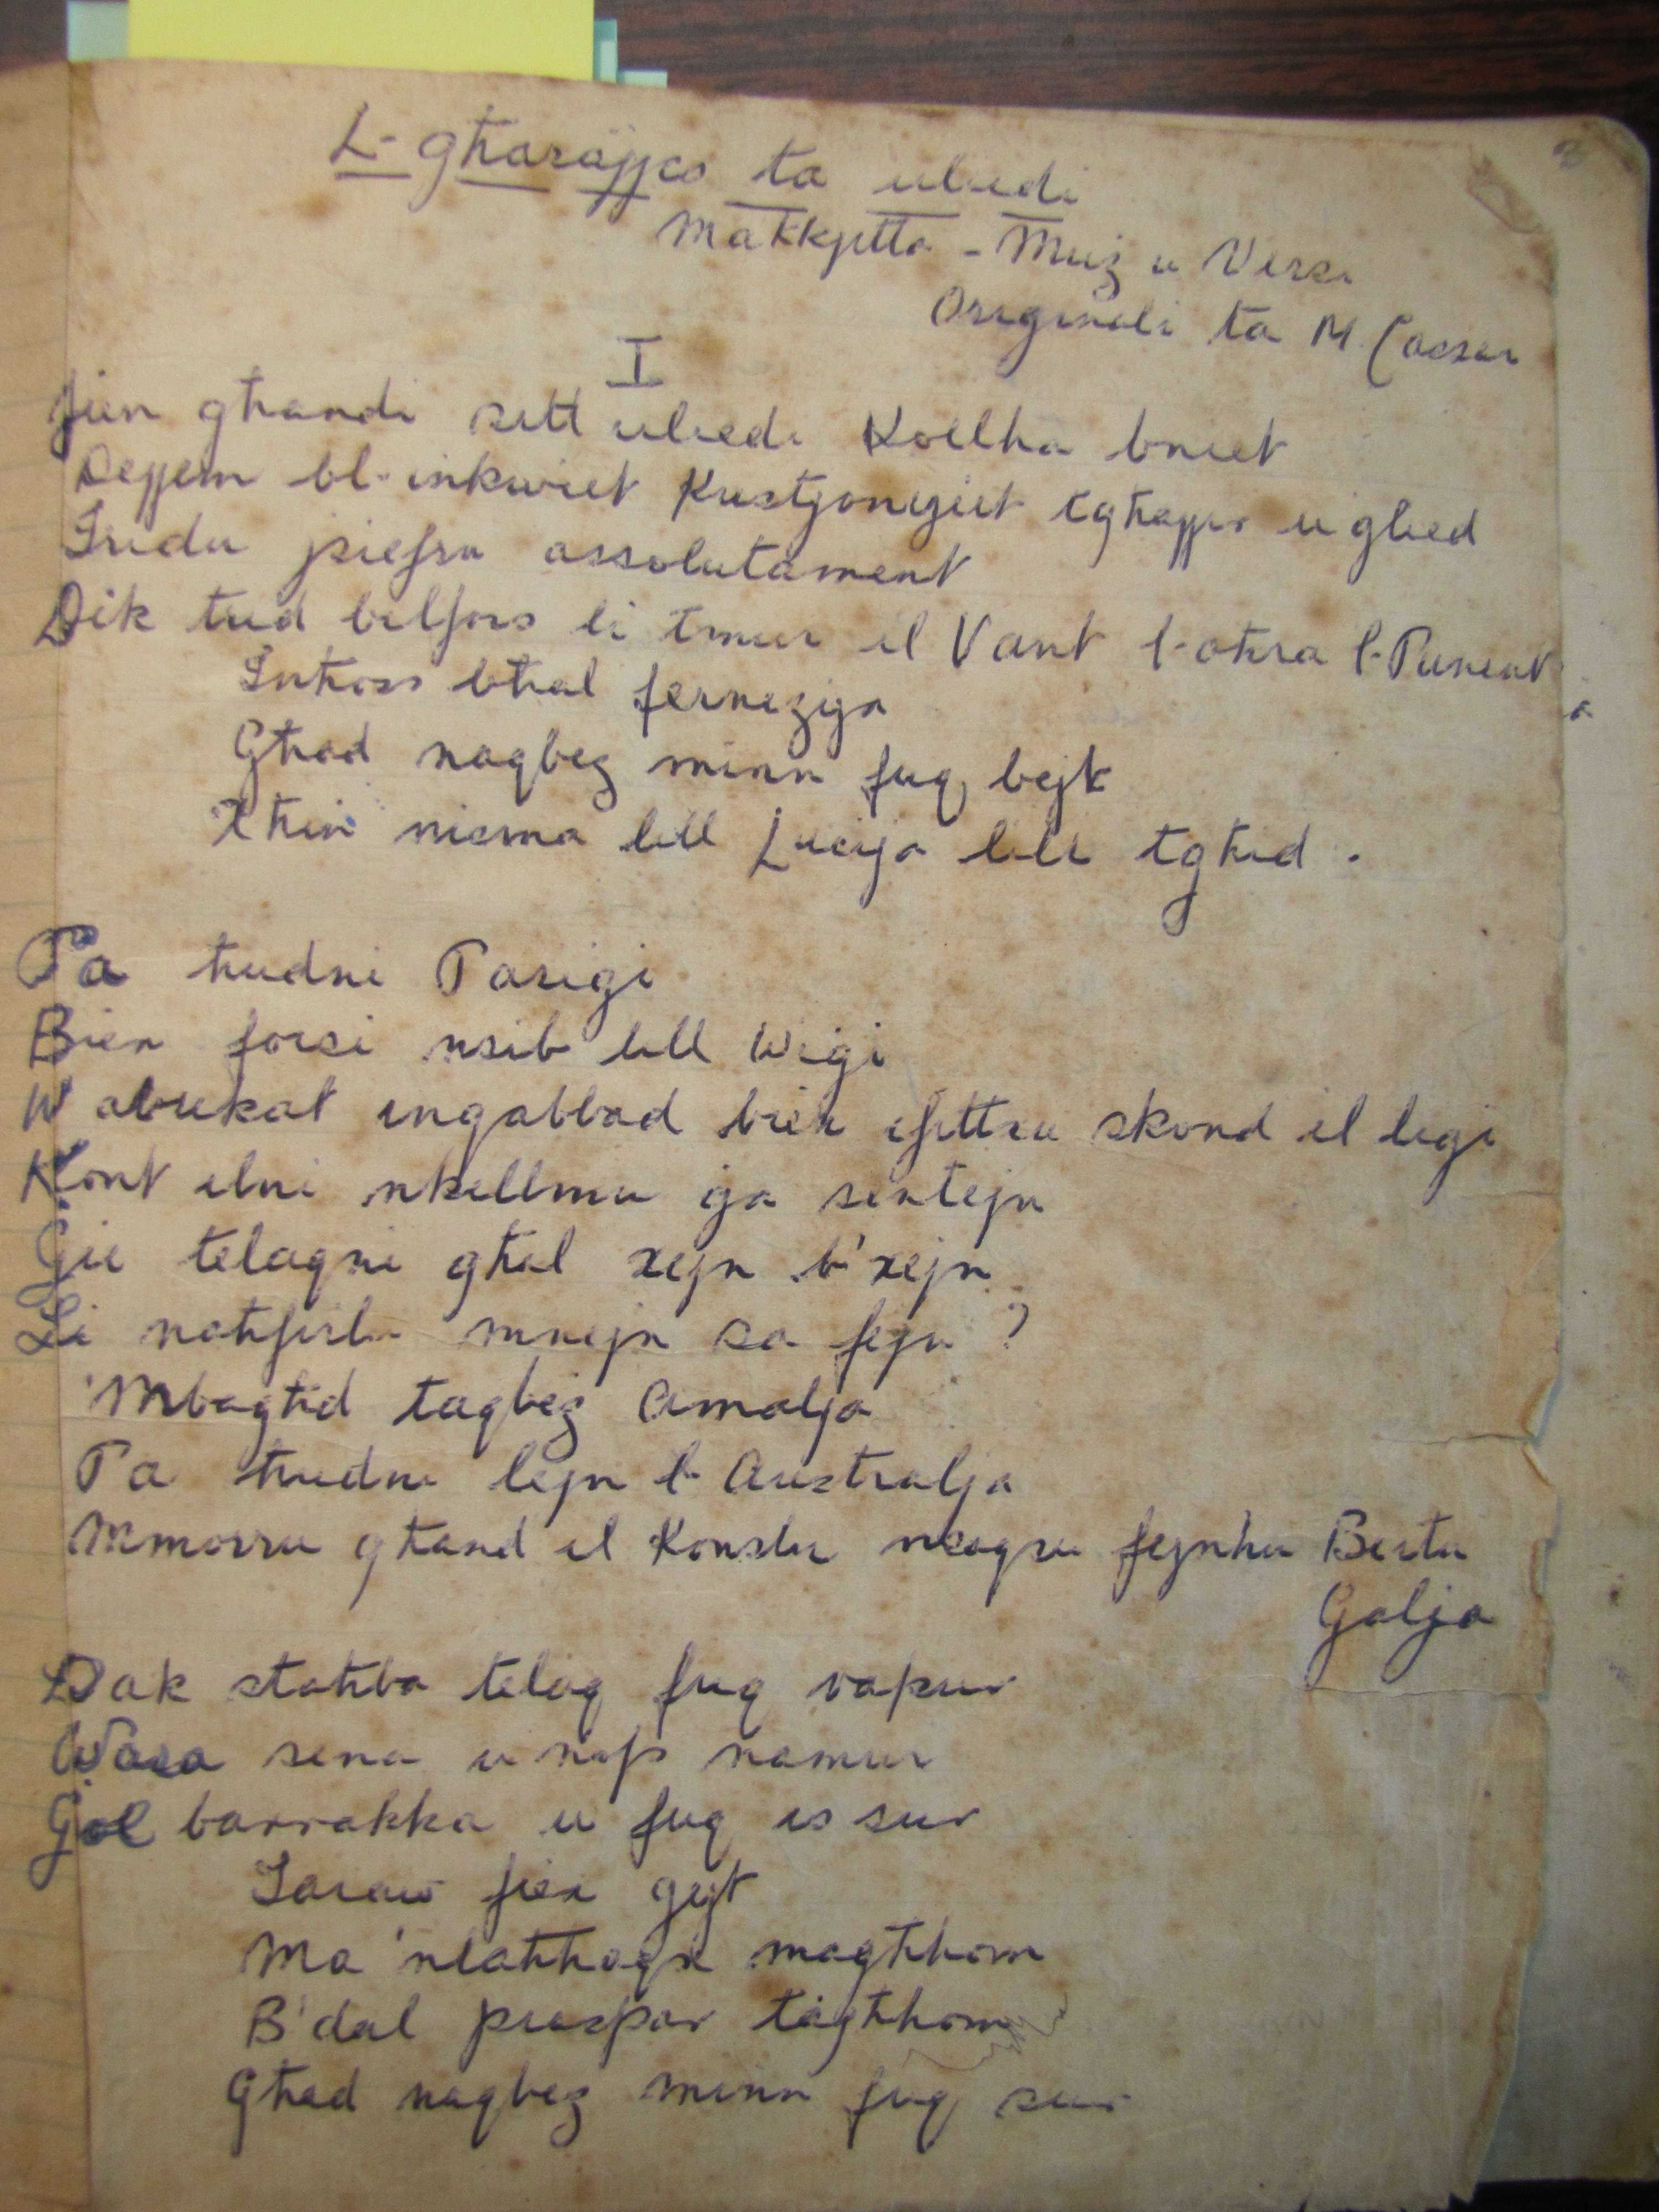 L-għarajjes ta uliedi
Makkjetta - Muż u Versi
Originali ta M. Caesar
I
Jien għandi sitt uliedi Koellha bniet
Dejjem bl-inkwiet Kustjonijiet tgħajjir u glied
Iridu jsiefru assolutament
Dik trid bilfors li tmur il Vant l-oħra l-Punent
Inħoss bħal ferneżija
Għad naqbeż minn fuq bejt
Xħin nisma lill Luċija lili tgħid .
Pa ħudni Parigi
Biex forsi nsib lill Wigi
W abukat ingabbad biex ifittxu skond il liġi
Kont ilni nkellmu ġa sentejn
Ġie telaqni għal xejn b'xejn
Li naħfirlu mnejn sa fejn ?
'Mbagħad taqbeż Amalja
Pa ħudni lejn l-Australja
Mmorru għand il Konslu nsaqsu fejnhu Bertu
Galja
Dak staħba telaq fuq vapur
Wara sena u nofs namur
Ġol barrakka u fuq is sur
Saraw fiex ġejt
Ma 'nlaħħaqx magħhom
B'dal prospar tagħhom
Għad naqbeż minn fuq sur